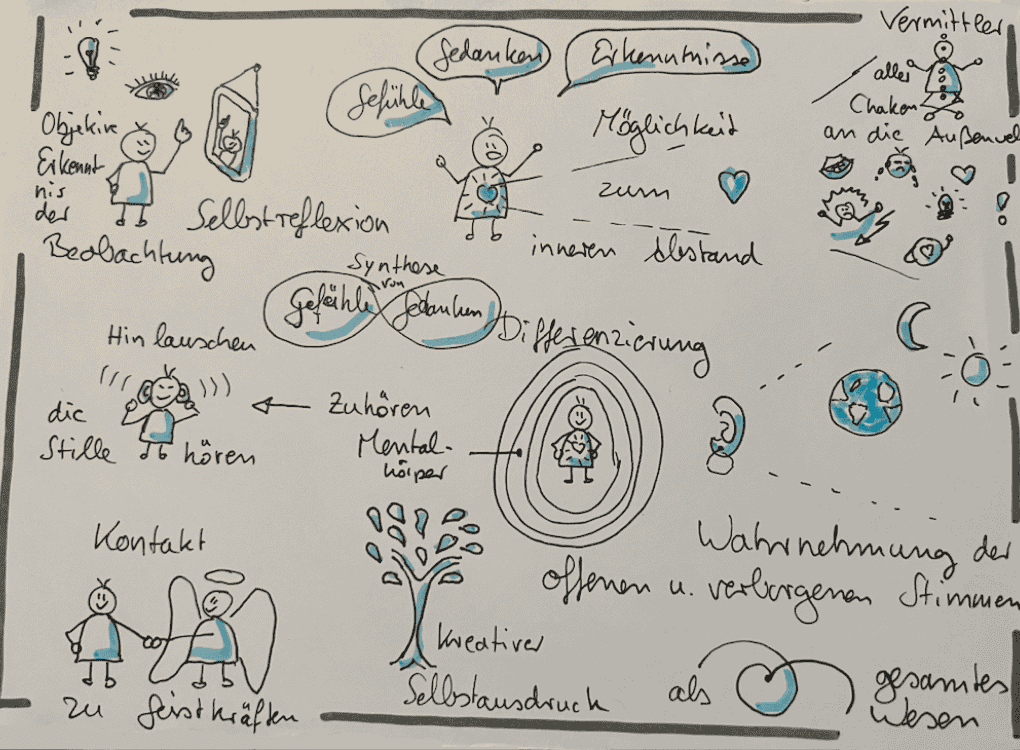 Objektive
Erkennt
nis
der
Beobachtung
Selbstreflexion
Gefühle
Gedanken
Erkenntnisse
Möglichkeit
zum
inneren Abstand
Vermittler
aller
Chakren
an die Außenwel
Synthese
von
Gefühle
Gedanken
Differenzierung
Hin lauschen
die
Stille
hören
Zuhören
Mental-
körper
Wahrnehmung der
offenen u. verborgenen Stimmen
Kontakt
zu Geistkräften
Kreativer
Selbstausdruck
als
gesamtes
Wesen